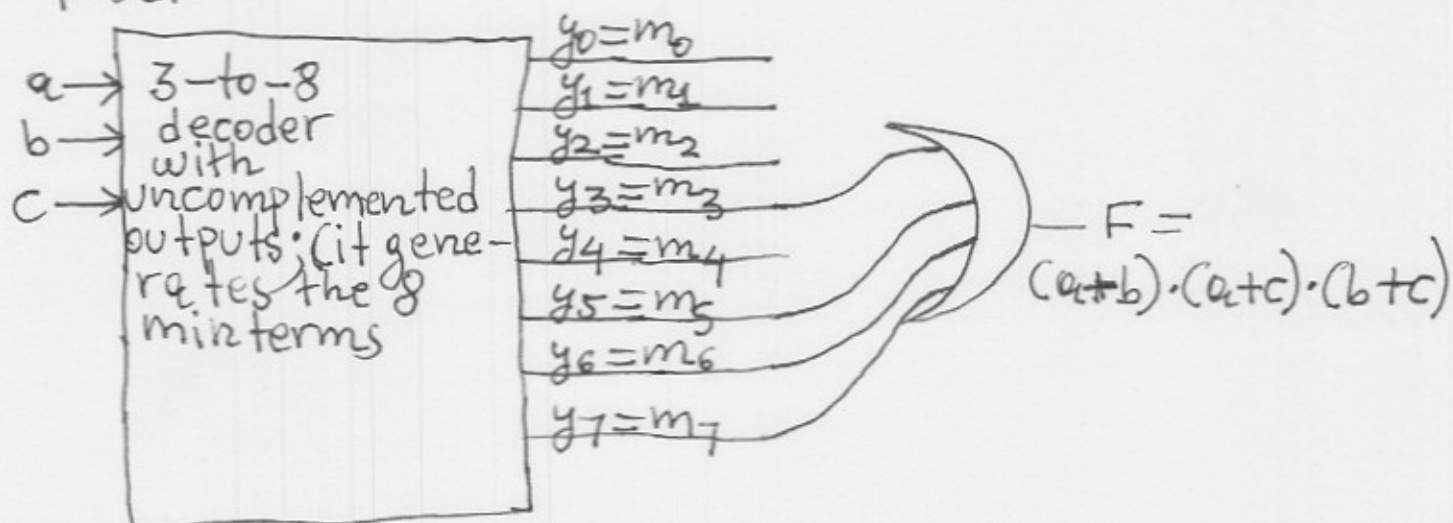 a
b
c
3-to-8
decoder
with
uncomplemented
outputs; (it gene-
rates the 8
minterms
y0=m0
y1=m1
y2=m2
y3=m3
y4=m4
y5=m5
y6=m6
y7=m7
F=
(a+b)·(a+c)·(b+c)